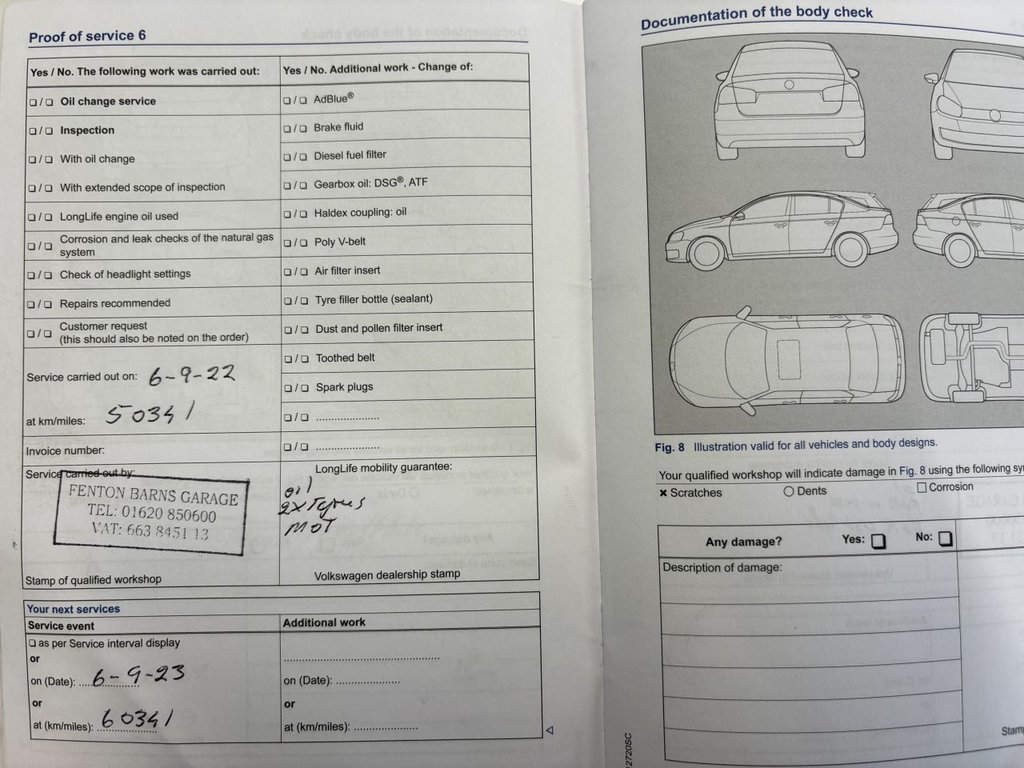 Proof of service 6
Yes / No. The following work was carried out:
❏ / ❏ Oil change service
❏ / ❏ Inspection
❏ / ❏ With oil change
❏ / ❏ With extended scope of inspection
❏ / ❏ LongLife engine oil used
❏ / ❏ Corrosion and leak checks of the natural gas
system
❏ / ❏ Check of headlight settings
❏ / ❏ Repairs recommended
❏ / ❏ Customer request
(this should also be noted on the order)
Service carried out on: 6-9-22
at km/miles: 50341
Invoice number:
Service carried out by:
FENTON BARNS GARAGE
TEL: 01620 850600
VAT: 663 8451 13
Stamp of qualified workshop
Yes / No. Additional work - Change of:
❏ / ❏ AdBlue®
❏ / ❏ Brake fluid
❏ / ❏ Diesel fuel filter
❏ / ❏ Gearbox oil: DSG®, ATF
❏ / ❏ Haldex coupling: oil
❏ / ❏ Poly V-belt
❏ / ❏ Air filter insert
❏ / ❏ Tyre filler bottle (sealant)
❏ / ❏ Dust and pollen filter insert
❏ / ❏ Toothed belt
❏ / ❏ Spark plugs
❏ / ❏ ....................
❏ / ❏ ....................
LongLife mobility guarantee:
oil
2x Tyres
MOT
Volkswagen dealership stamp
Your next services
Service event
❏ as per Service interval display
or
on (Date): 6-9-23
or
at (km/miles): 60341
Additional work
..................................................
on (Date): ....................
or
at (km/miles): ....................
Documentation of the body check
Fig. 8 Illustration valid for all vehicles and body designs.
Your qualified workshop will indicate damage in Fig. 8 using the following
× Scratches ○ Dents □ Corrosion
Any damage? Yes: ❏ No: ❏
Description of damage:
12720SC